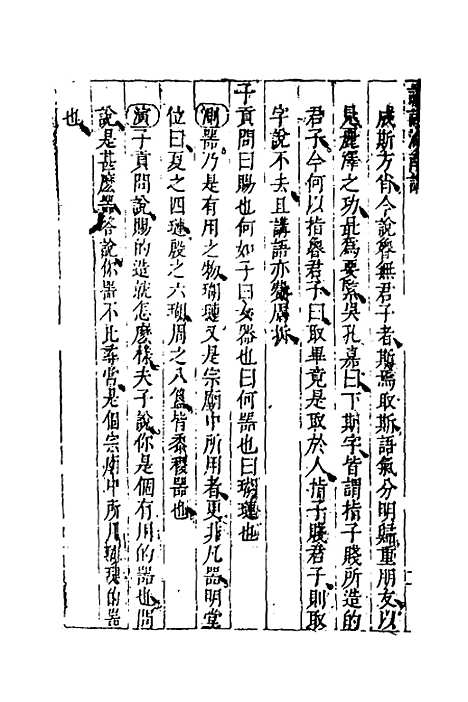 成斯方肖今說魯無君子者斯焉取斯語氣分明歸重朋友以
見麗澤之功最為要緊吳孔嘉曰下斯字皆謂指子賤所造的
君子今何以指魯君子曰取畢竟是取於人指子賤君子則取
字說不去且講語亦
子貢問曰賜也何如子曰女器也曰何器也曰瑚璉也
測器乃是有用之物瑚璉又是宗廟中所用者更非凡器明堂
位曰夏之四璉殷之六瑚周之八簋皆黍稷器也
演子貢問說賜的造就怎麼樣夫子說你是個有用的器也問
說是甚麼器答說你器不比尋常是個宗廟中所用瑚璉的器
也